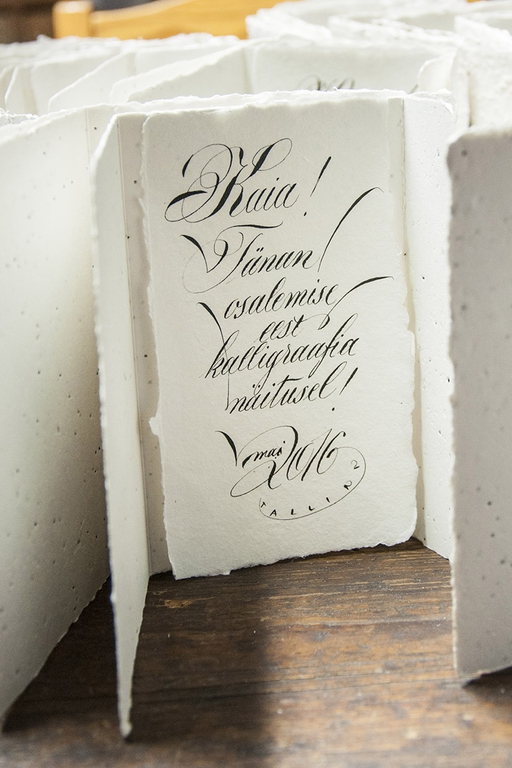 Kaia!
Tänan
osalemise
eest
kalligraafia
näitusel!
mai 2016
TALLINN